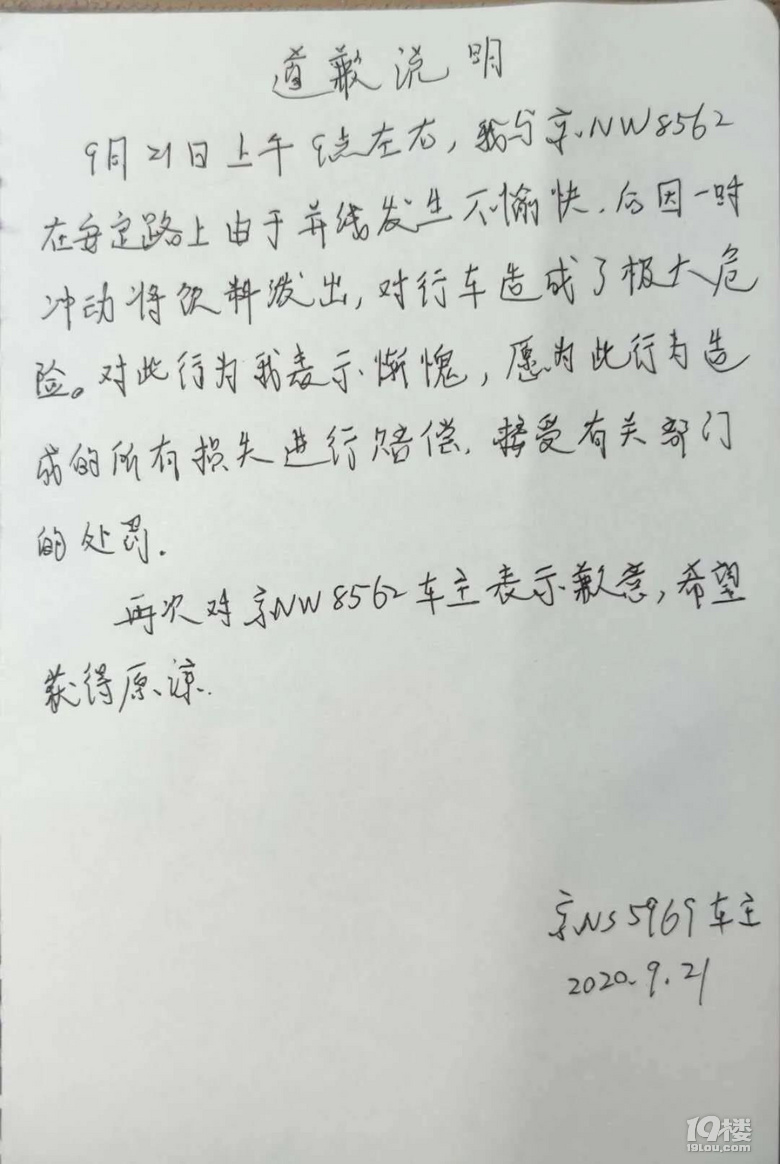 道歉说明
9月21日上午9点左右，我与京NW8562
在安定路上由于并线发生不愉快.后因一时
冲动将饮料泼出，对行车造成了极大危
险。对此行为我表示惭愧，愿为此行为造
成的所有损失进行赔偿.接受有关部门
的处罚.
再次对京NW8562车主表示歉意，希望
获得原谅.
京NS5969车主
2020.9.21
19楼
19lou.com